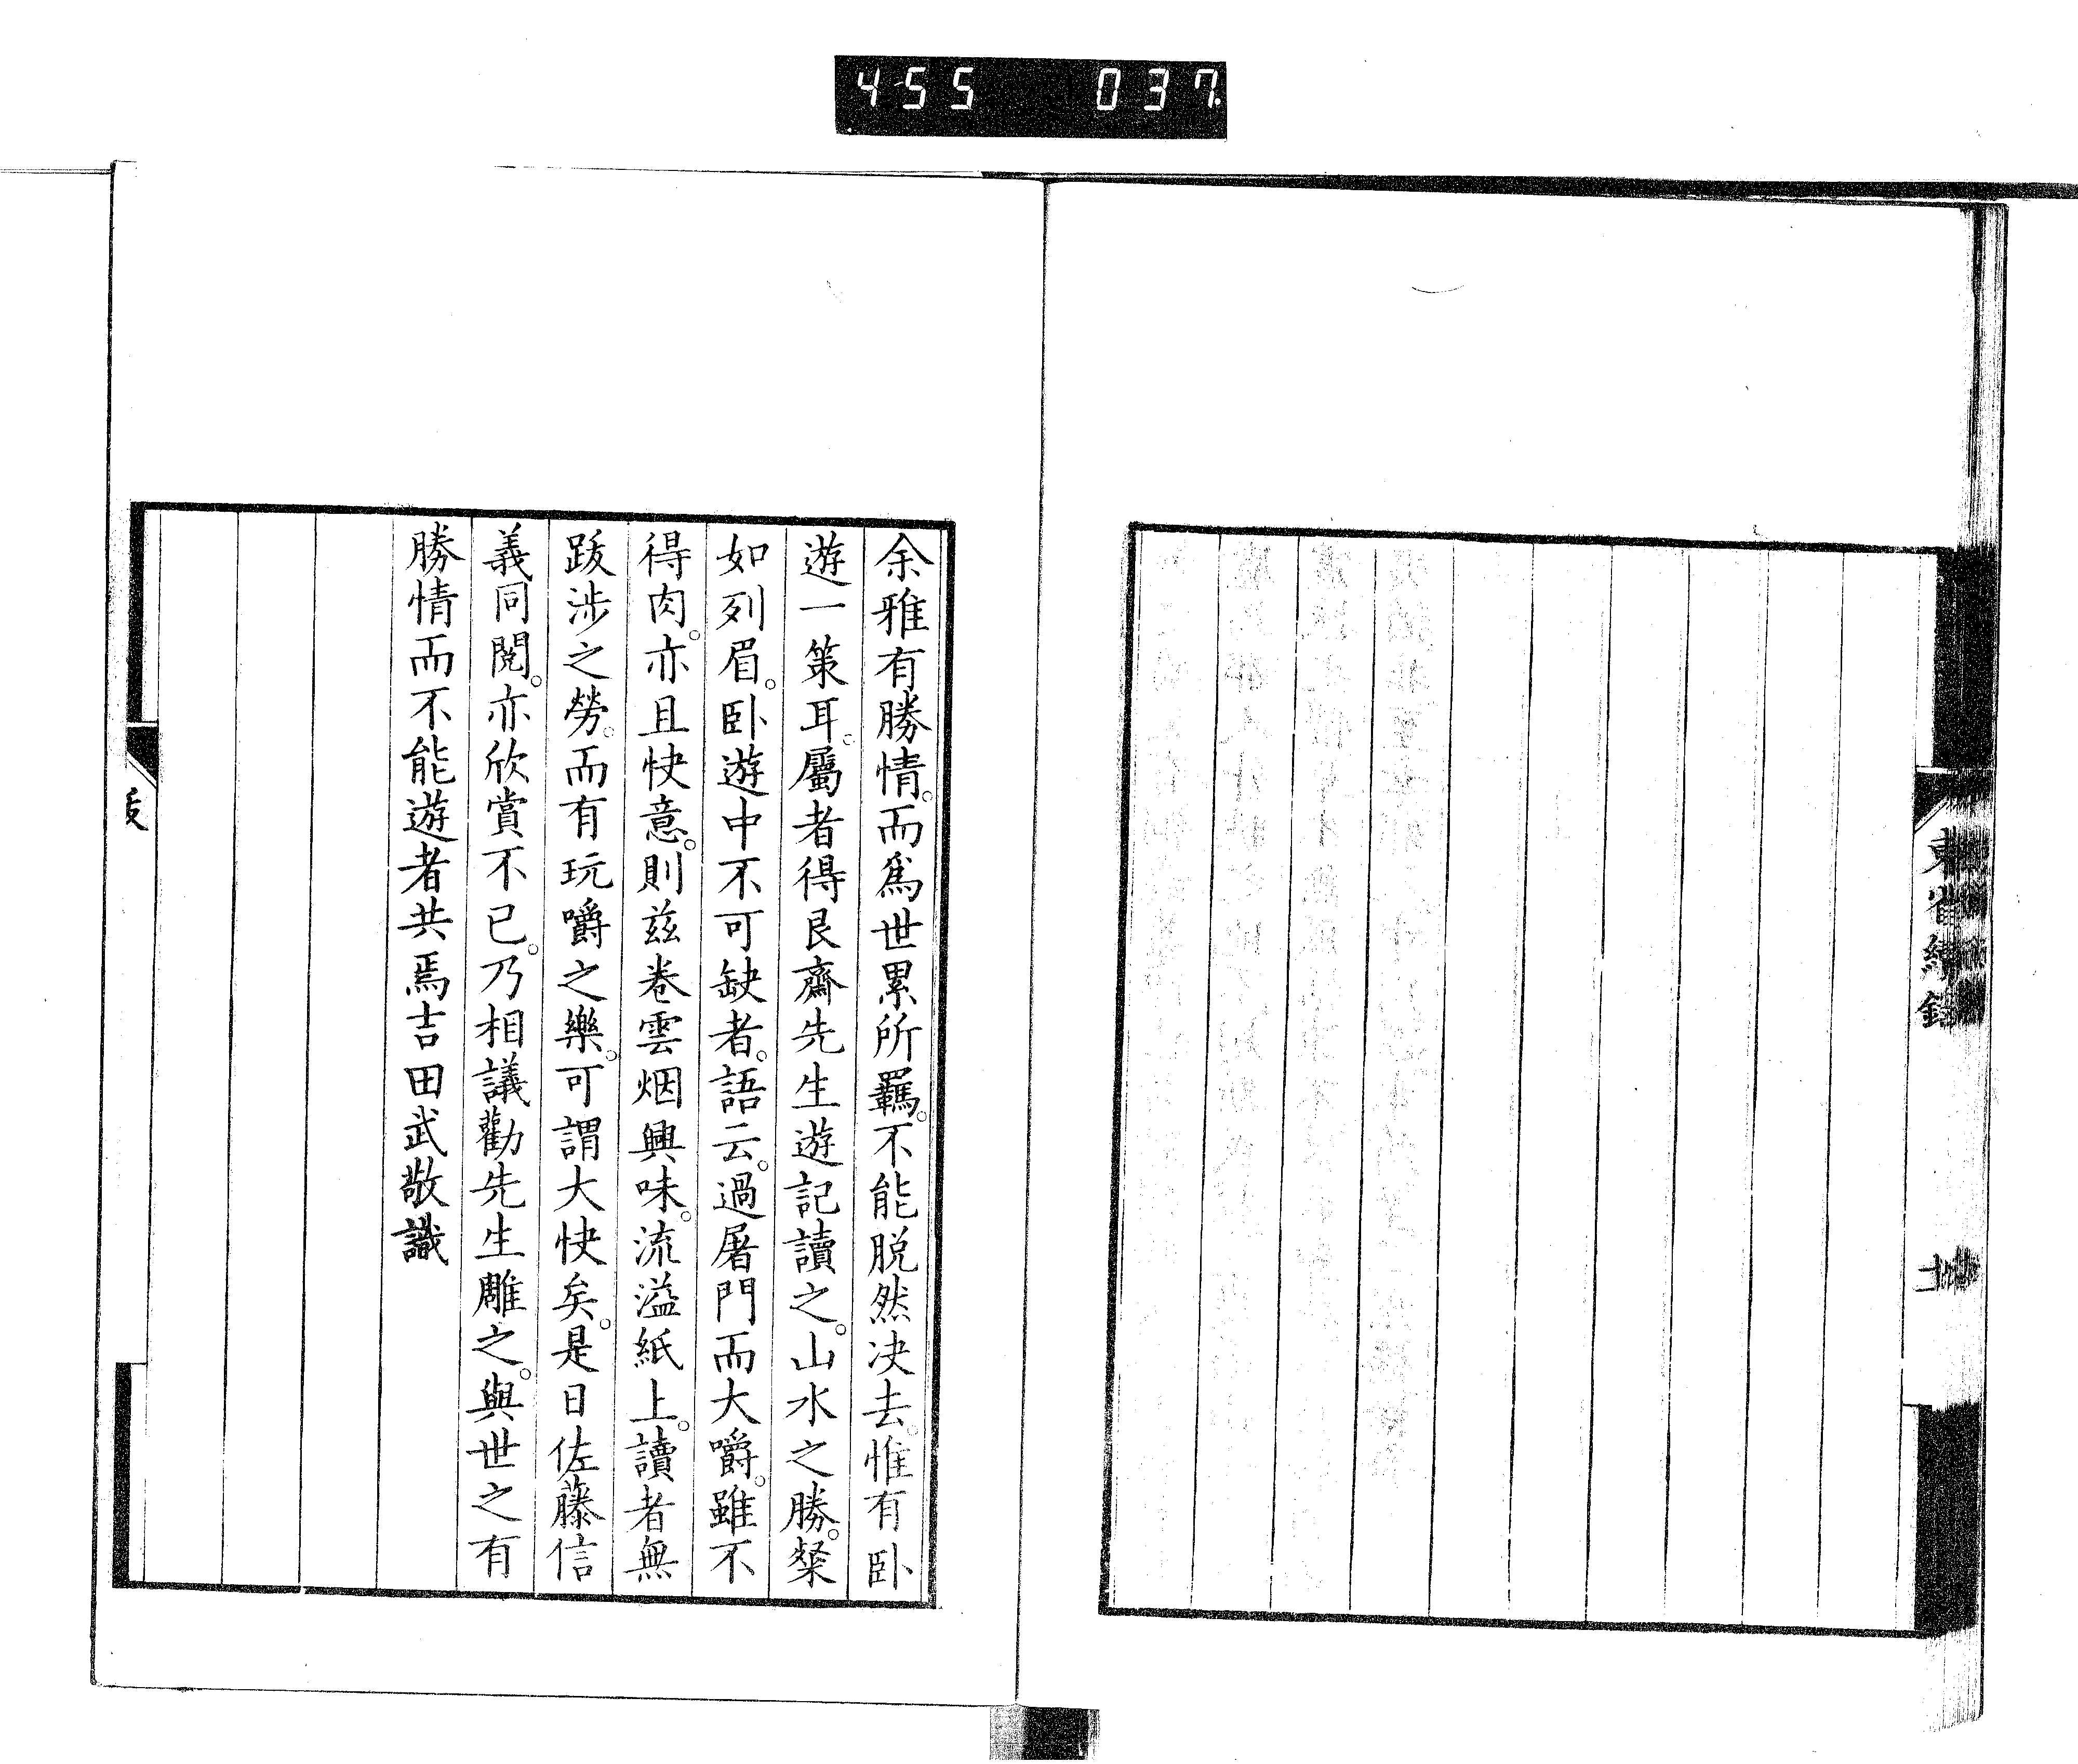 455 037
余雅有勝情。而爲世累所羈。不能脱然决去。惟有卧
遊一策耳。屬者得艮齋先生遊記讀之。山水之勝。粲
如列眉。卧遊中不可缺者。語云。過屠門而大嚼。雖不
得肉。亦且快意。則玆卷雲烟興味。流溢紙上。讀者無
跋涉之勞。而有玩嚼之樂。可謂大快矣。是日佐藤信
義同閲。亦欣賞不已。乃相議勸先生雕之。與世之有
勝情而不能遊者共焉吉田武敬識